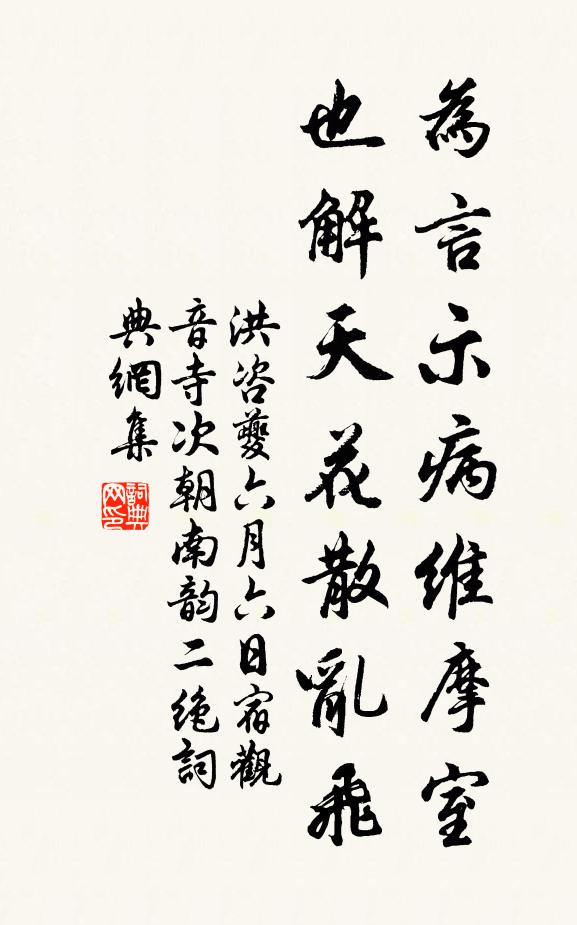 為言示病維摩室
也解天花散亂飛
洪咨夔六月六日宿觀
音寺次朝南韵二绝詞
典網集
詞典
网印